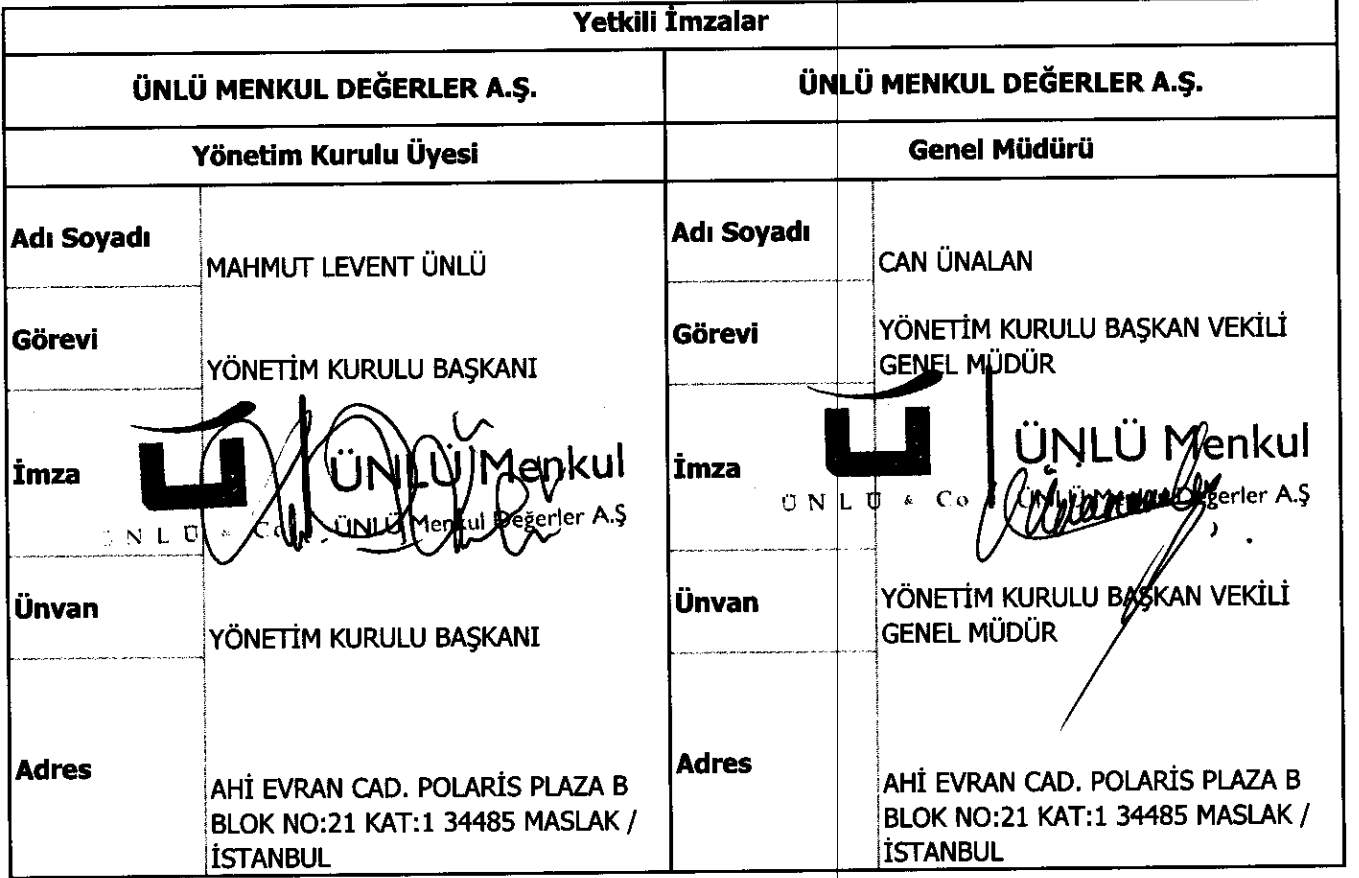 Yetkili İmzalar
ÜNLÜ MENKUL DEĞERLER A.Ş.
ÜNLÜ MENKUL DEĞERLER A.Ş.
Yönetim Kurulu Üyesi
Genel Müdürü
Adı Soyadı
MAHMUT LEVENT ÜNLÜ
Adı Soyadı
CAN ÜNALAN
Görevi
YÖNETİM KURULU BAŞKANI
Görevi
YÖNETİM KURULU BAŞKAN VEKİLİ
GENEL MÜDÜR
İmza
ÜNLÜ Menkul
NLÜ & Co
ÜNLÜ Menkul Değerler A.Ş
İmza
ÜNLÜ Menkul
ÜNLÜ & Co
ÜNLÜ Menkul Değerler A.Ş
Ünvan
YÖNETİM KURULU BAŞKANI
Ünvan
YÖNETİM KURULU BAŞKAN VEKİLİ
GENEL MÜDÜR
Adres
AHİ EVRAN CAD. POLARİS PLAZA B
BLOK NO:21 KAT:1 34485 MASLAK /
İSTANBUL
Adres
AHİ EVRAN CAD. POLARİS PLAZA B
BLOK NO:21 KAT:1 34485 MASLAK /
İSTANBUL